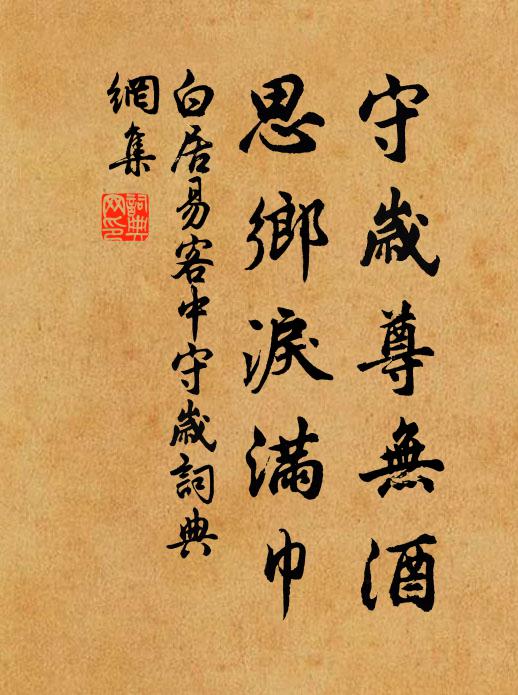 守歲尊無酒
思鄉淚滿巾
白居易客中守歲詞典
網集
詞典
网印